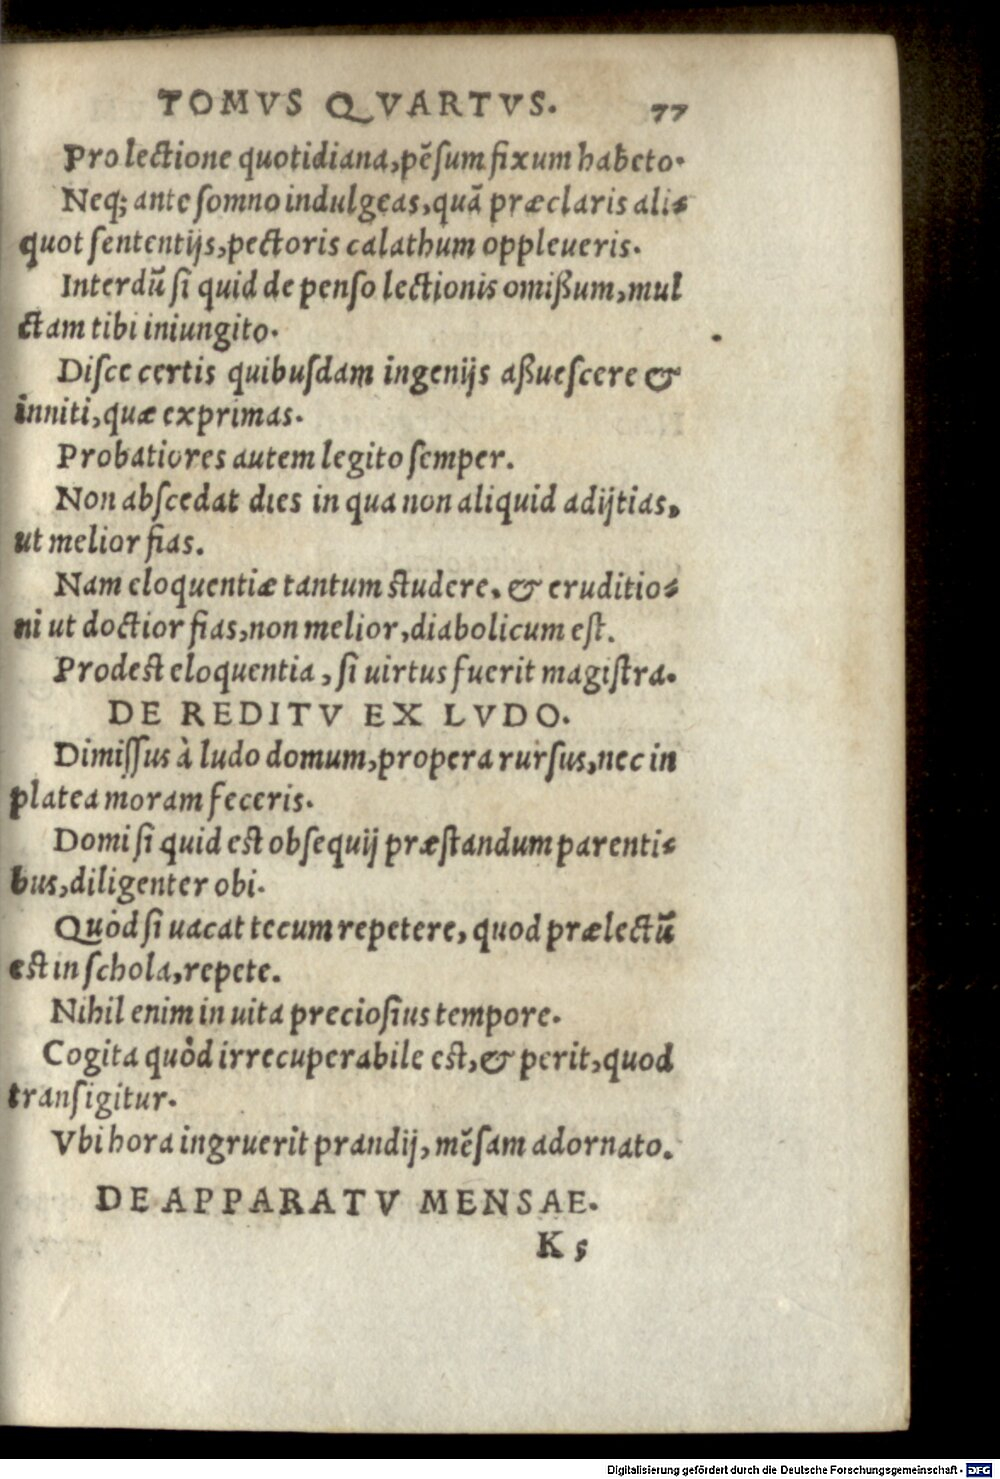 TOMVS QVARTVS. 77
Pro lectione quotidiana, pẽsum fixum habeto.
Neq; ante somno indulgeas, quã præclaris ali⸗
quot sententijs, pectoris calathum oppleueris.
Interdũ si quid de penso lectionis omißum, mul
ctam tibi iniungito.
Disce certis quibusdam ingenijs aßuescere &
inniti, quæ exprimas.
Probatiores autem legito semper.
Non abscedat dies in qua non aliquid adijtias,
ut melior fias.
Nam eloquentiæ tantum studere, & eruditio⸗
ni ut doctior fias, non melior, diabolicum est.
Prodest eloquentia, si uirtus fuerit magistra.
DE REDITV EX LVDO.
Dimissus à ludo domum, propera rursus, nec in
platea moram feceris.
Domi si quid est obsequij præstandum parenti⸗
bus, diligenter obi.
Quòd si uacat tecum repetere, quod prælectũ
est in schola, repete.
Nihil enim in uita preciosius tempore.
Cogita quòd irrecuperabile est, & perit, quod
transigitur.
Vbi hora ingruerit prandij, mẽsam adornato.
DE APPARATV MENSAE.
K 5
Digitalisierung gefördert durch die Deutsche Forschungsgemeinschaft - DFG